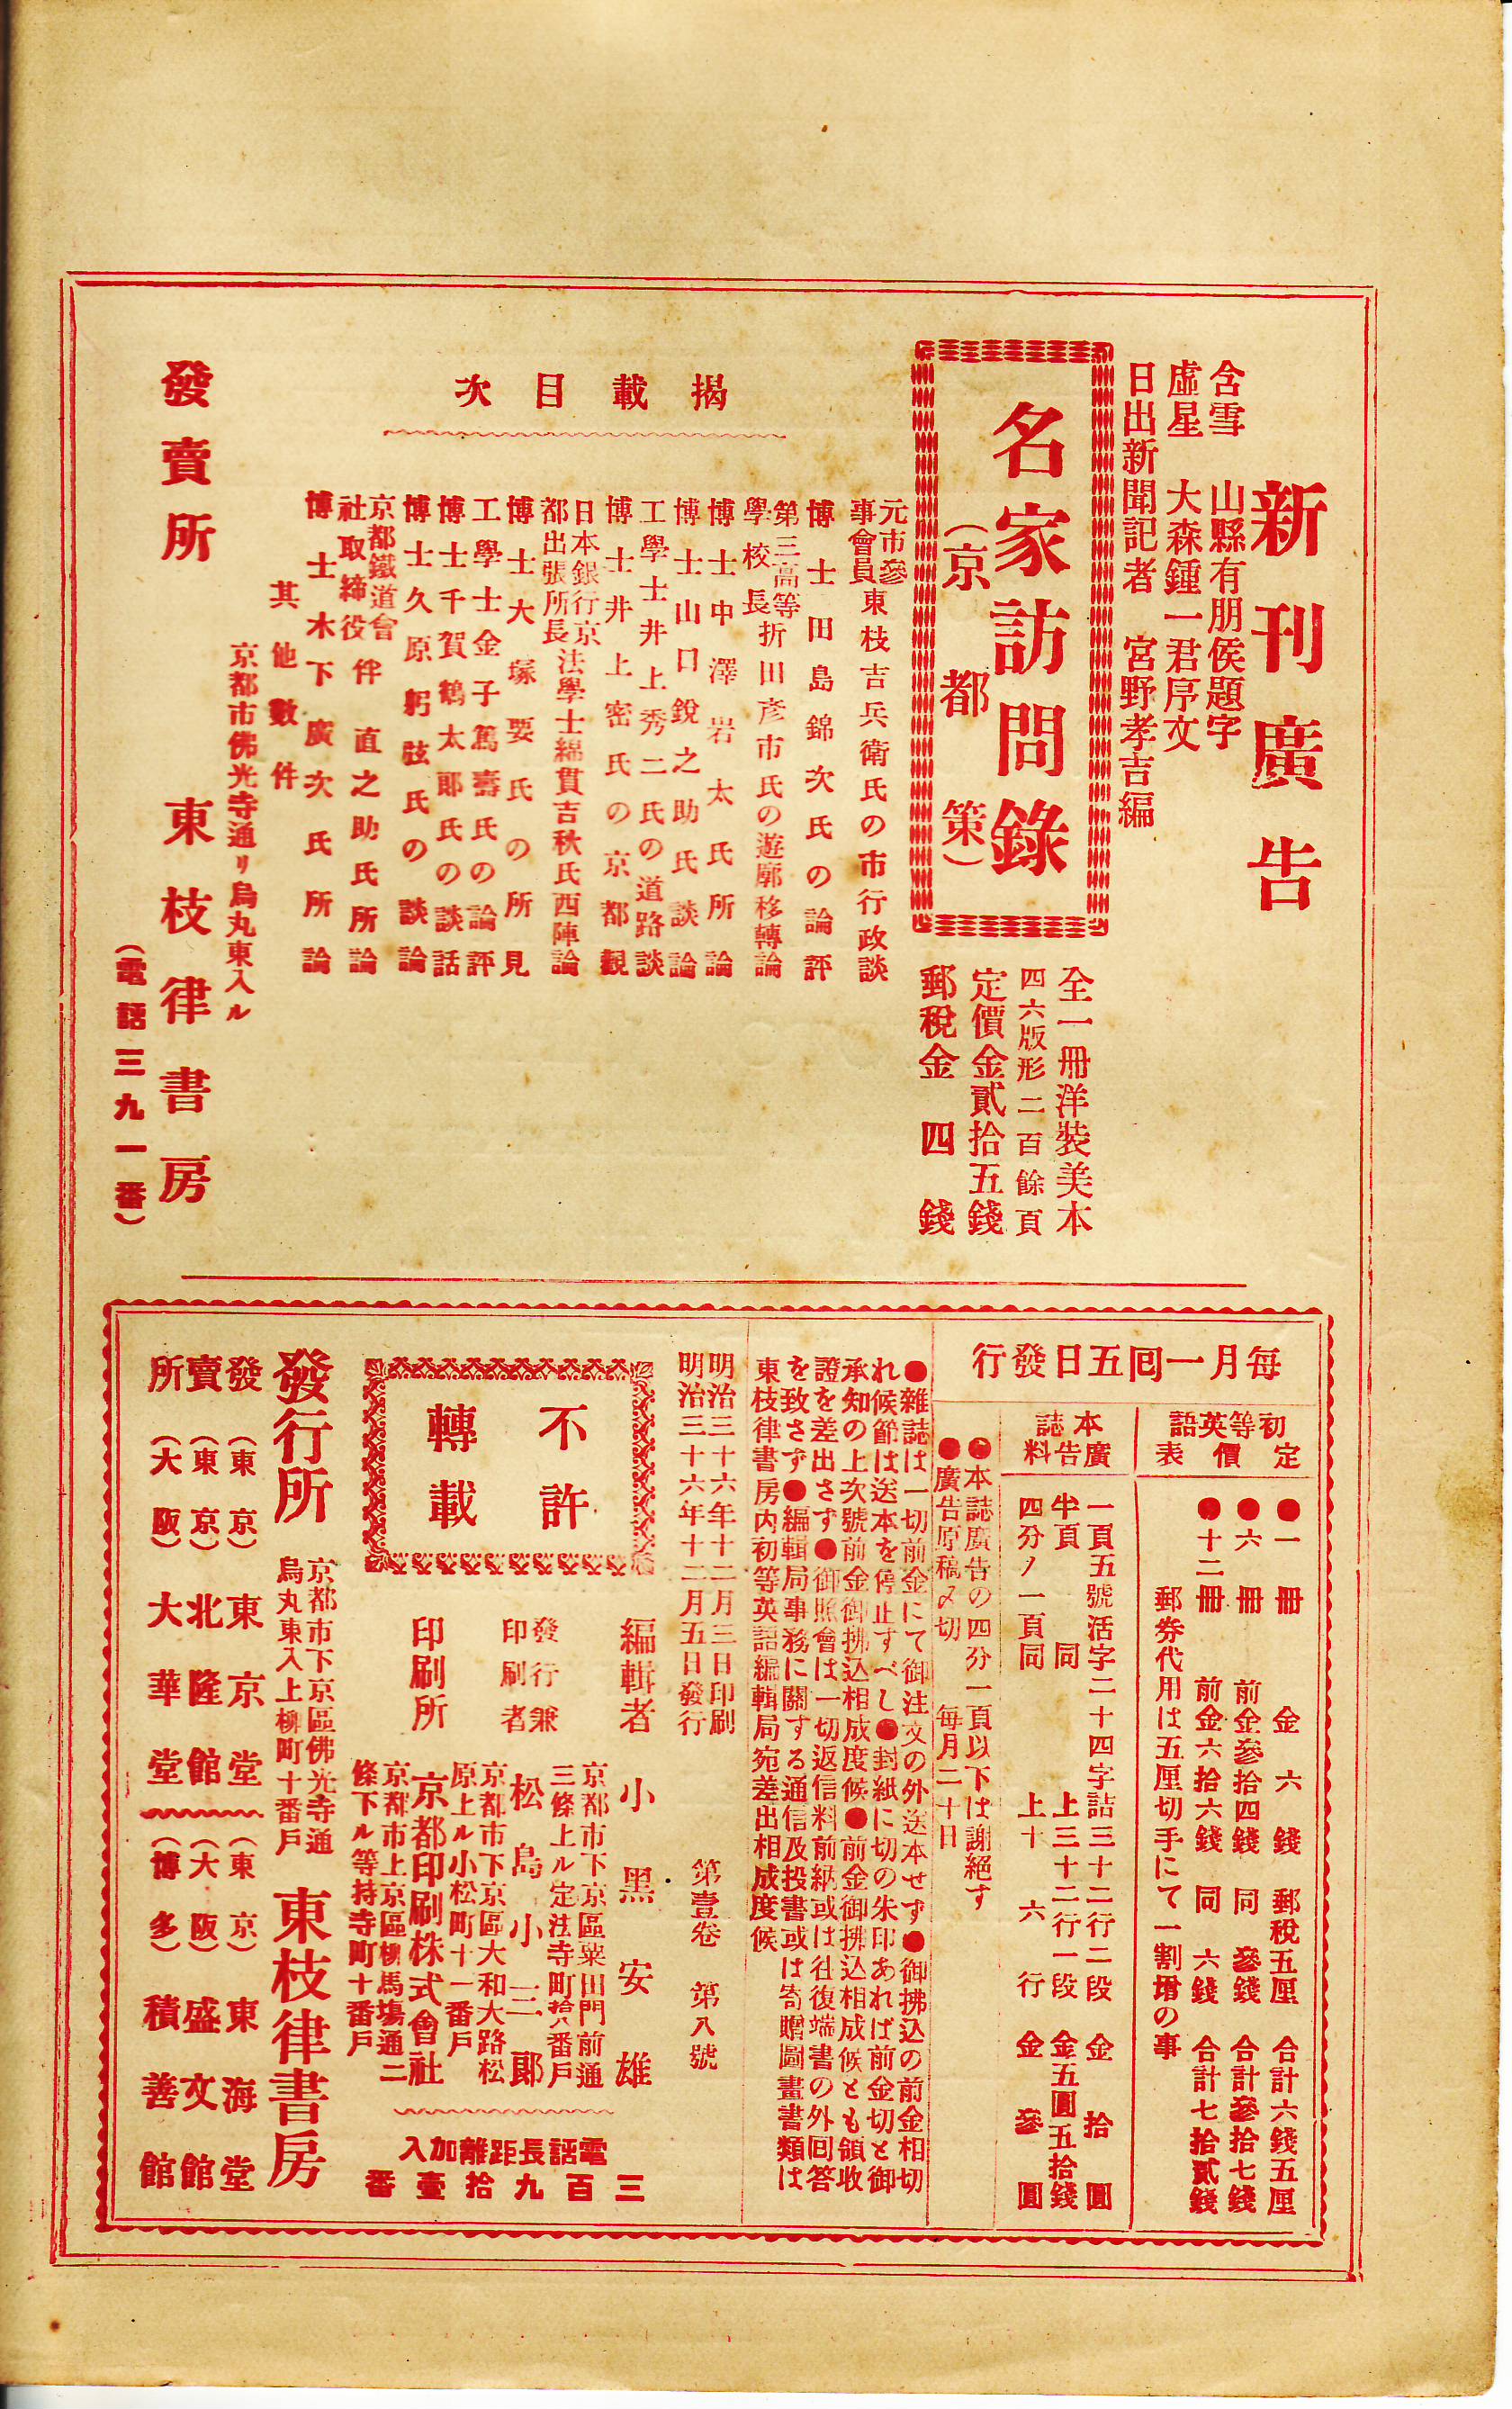 新刊廣告
含雪 山縣有朋侯題字
虛星 大森鍾一君序文
日出新聞記者 宮野孝吉編
名家訪問錄
(京都策)
全一冊洋裝美本
四六版形二百餘頁
定價金貳拾五錢
郵稅金四錢
揭載目次
元市參事會員 東枝吉兵衛氏の市行政談
博士田島錦次氏の論評
第三高等學校長 折田彥市氏の遊廓移轉論
博士中澤岩太氏所論
博士山口銳之助氏談論
工學士井上秀二氏の道路談
博士井上密氏の京都觀
日本銀行京都出張所長 法學士綿貫吉秋氏西陣論
博士大塚要氏の所見
工學士金子篤壽氏の論評
博士千賀鶴太郞氏の談話
博士久原躬弦氏の談論
京都鐵道會社取締役 伴直之助氏所論
博士木下廣次氏所論
其他數件
京都市佛光寺通リ烏丸東入ル
發賣所 東枝律書房
(電話三九一番)
每月一囘五日發行
初等英語定價表
●一冊 金六錢 郵稅五厘 合計六錢五厘
●六冊 前金參拾四錢 同參錢 合計參拾七錢
●十二冊 前金六拾六錢 同六錢 合計七拾貳錢
郵券代用は五厘切手にて一割增の事
本誌廣告料
一頁五號活字二十四字詰三十二行二段 金拾圓
半頁 同上三十二行一段 金五圓五拾錢
四分ノ一頁同上十六行 金參圓
●本誌廣告の四分一頁以下は謝絕す
●廣告原稿〆切 每月二十日
●雜誌は一切前金にて御注文の外送本せず●御拂込の前金相切
れ候節は送本を停止すべし●封紙に切の朱印あれば前金切と御
承知の上次號前金御拂込相成度候●前金御拂込相成候とも領收
證を差出さず●御照會は一切返信料前納或は往復端書の外囘答
を致さず●編輯局事務に關する通信及投書或は寄贈圖畫書類は
東枝律書房內初等英語編輯局宛差出相成度候
明治三十六年十二月三日印刷
明治三十六年十二月五日發行
第壹卷 第八號
不許
轉載
編輯者 小黑安雄
京都市下京區粟田門前通
三條上ル定法寺町拾八番戶
發行兼
印刷者 松島小三郞
京都市下京區大和大路松
原上ル小松町十一番戶
印刷所 京都印刷株式會社
京都市上京區柳馬塲通二
條下ル等持寺町十番戶
電話長距離加入
三百九拾壹番
京都市下京區佛光寺通
烏丸東入上柳町十番戶
發行所 東枝律書房
發賣所
(東京)東京堂
(東京)東海堂
(東京)北隆館
(大阪)盛文館
(大阪)大華堂
(博多)積善館